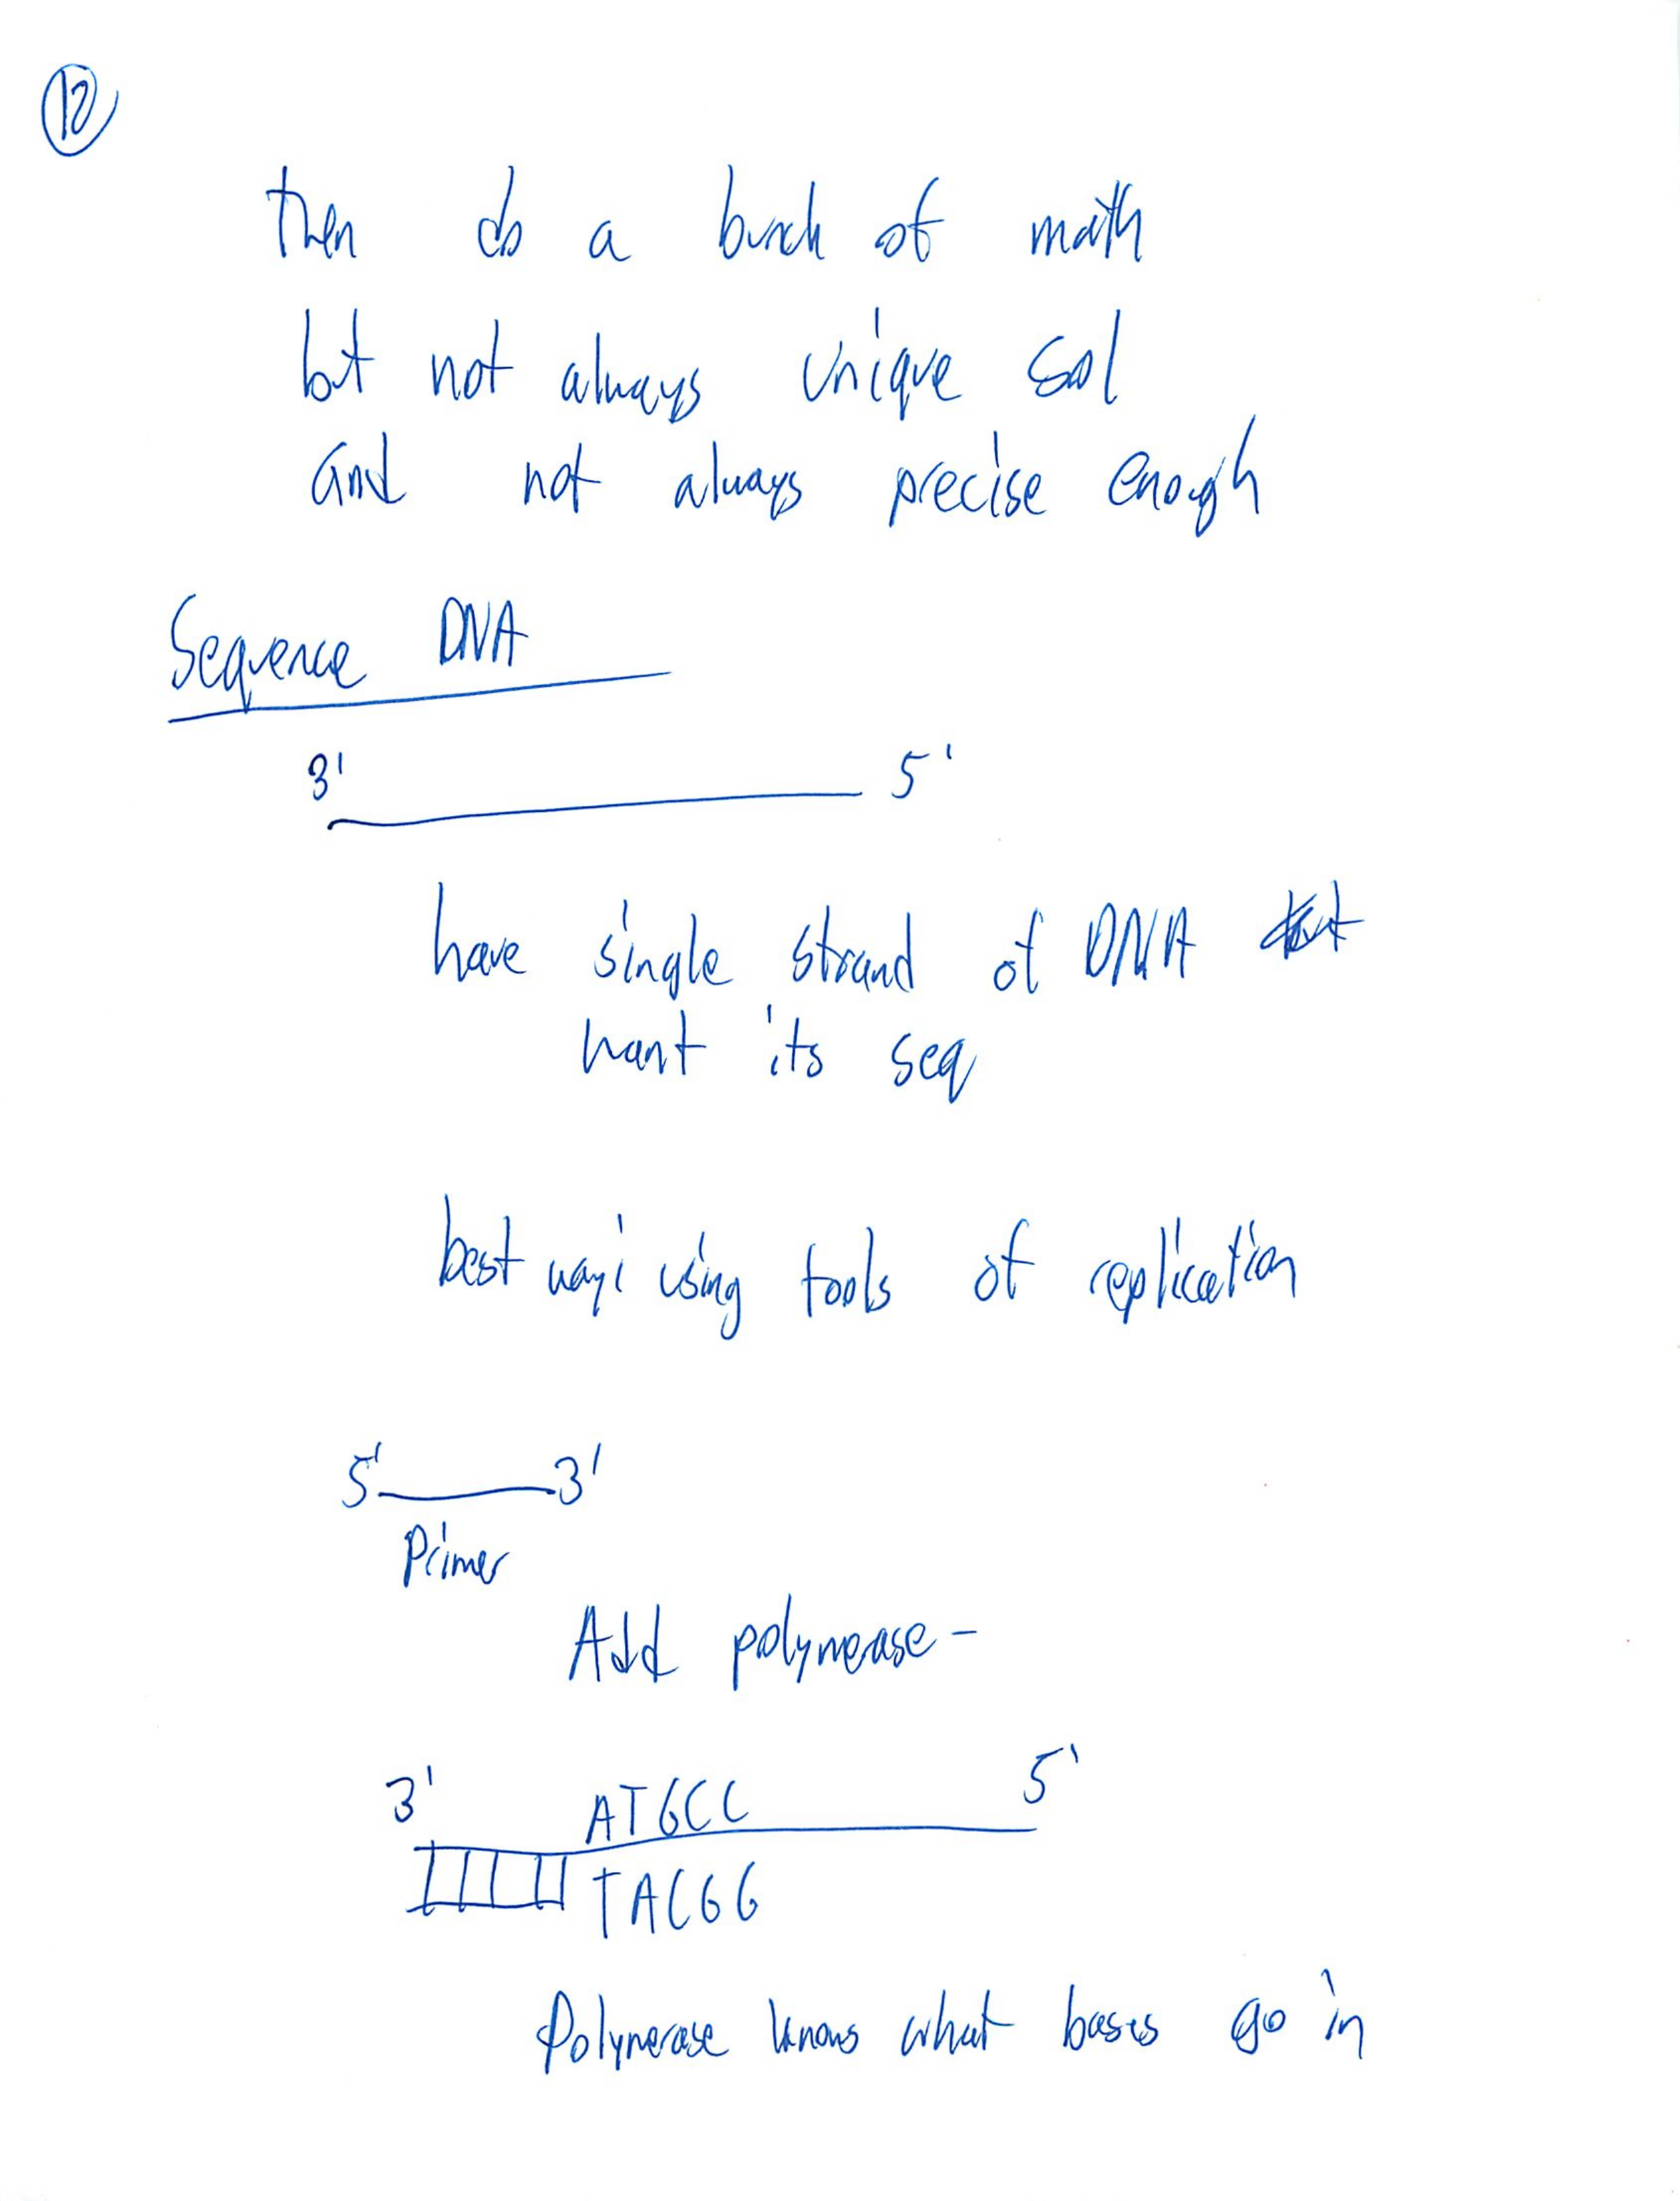 12
then do a bunch of math
but not always unique sol
and not always precise enough
Sequence DNA
3' 5'
have single strand of DNA
want its seq
best way: using tools of replication
5' 3'
Primer
Add polymerase -
3' ATGCC 5'
TACGG
Polymerase knows what bases go in